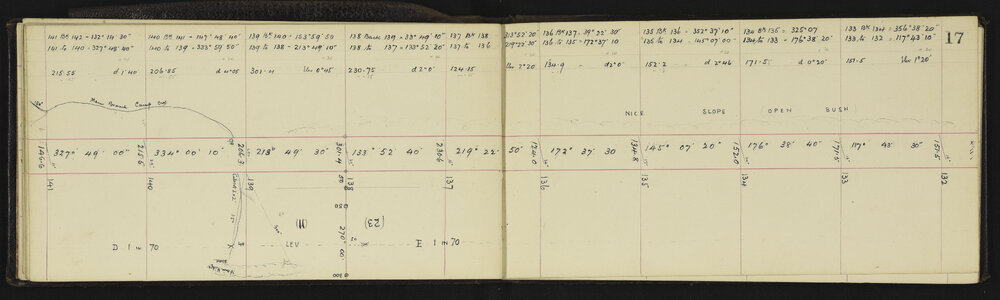 141 Bk 142 = 132° 14' 30"
141 to 140 = 327° 48' 40"
140 Bk 141 - 147° 48' 40"
140 to 139 = 333° 59' 50"
139 Bk 140 - 153° 59' 50
139 to 138 - 213° 49' 10"
138 Back 139 = 33° 49' 10"
138 to 137 = 133° 52' 20"
137 Bk 138
137 to 136
313° 52' 20"
219° 22' 30"
136 Bk 137. 39° 22' 30"
136 to 135 - 172° 37' 10
135 Bk 136 = 352° 37' 10"
135 to 134 = 145° 07' 00"
134 Bk 135 = 325° 07'
134 to 133 = 176° 38' 20"
133 Bk 134 = 356° 38' 20"
133 to 132 = 117° 43' 10"
17
215.55 d 1° 40'
206.85 d 4° 05
301.4 Ur 0° 45'
230.75 d 2° 0'
124.15 Ur 2° 20
134.9 d 2° 0'
152.2 d 2° 46
171.5 d 0° 20'
151.5 Ur 1° 20'
Main Branch Camp Ck
NICE SLOPE (OPEN BUSH)
146.6 327° 49' 00"
215.5 334° 00' 10"
206.3 213° 49' 30"
301.4 133° 52' 40"
230.6 219° 22' 50"
124.0 172° 37' 30
134.8 145° 07' 20"
152.0 176° 38' 40"
171.5 117° 43' 30"
151.5
141 140 139 138 137 136 135 134 133 132
50
(11) (23)
270° 00'
D 1 IN 70 LEV E 1 IN 70